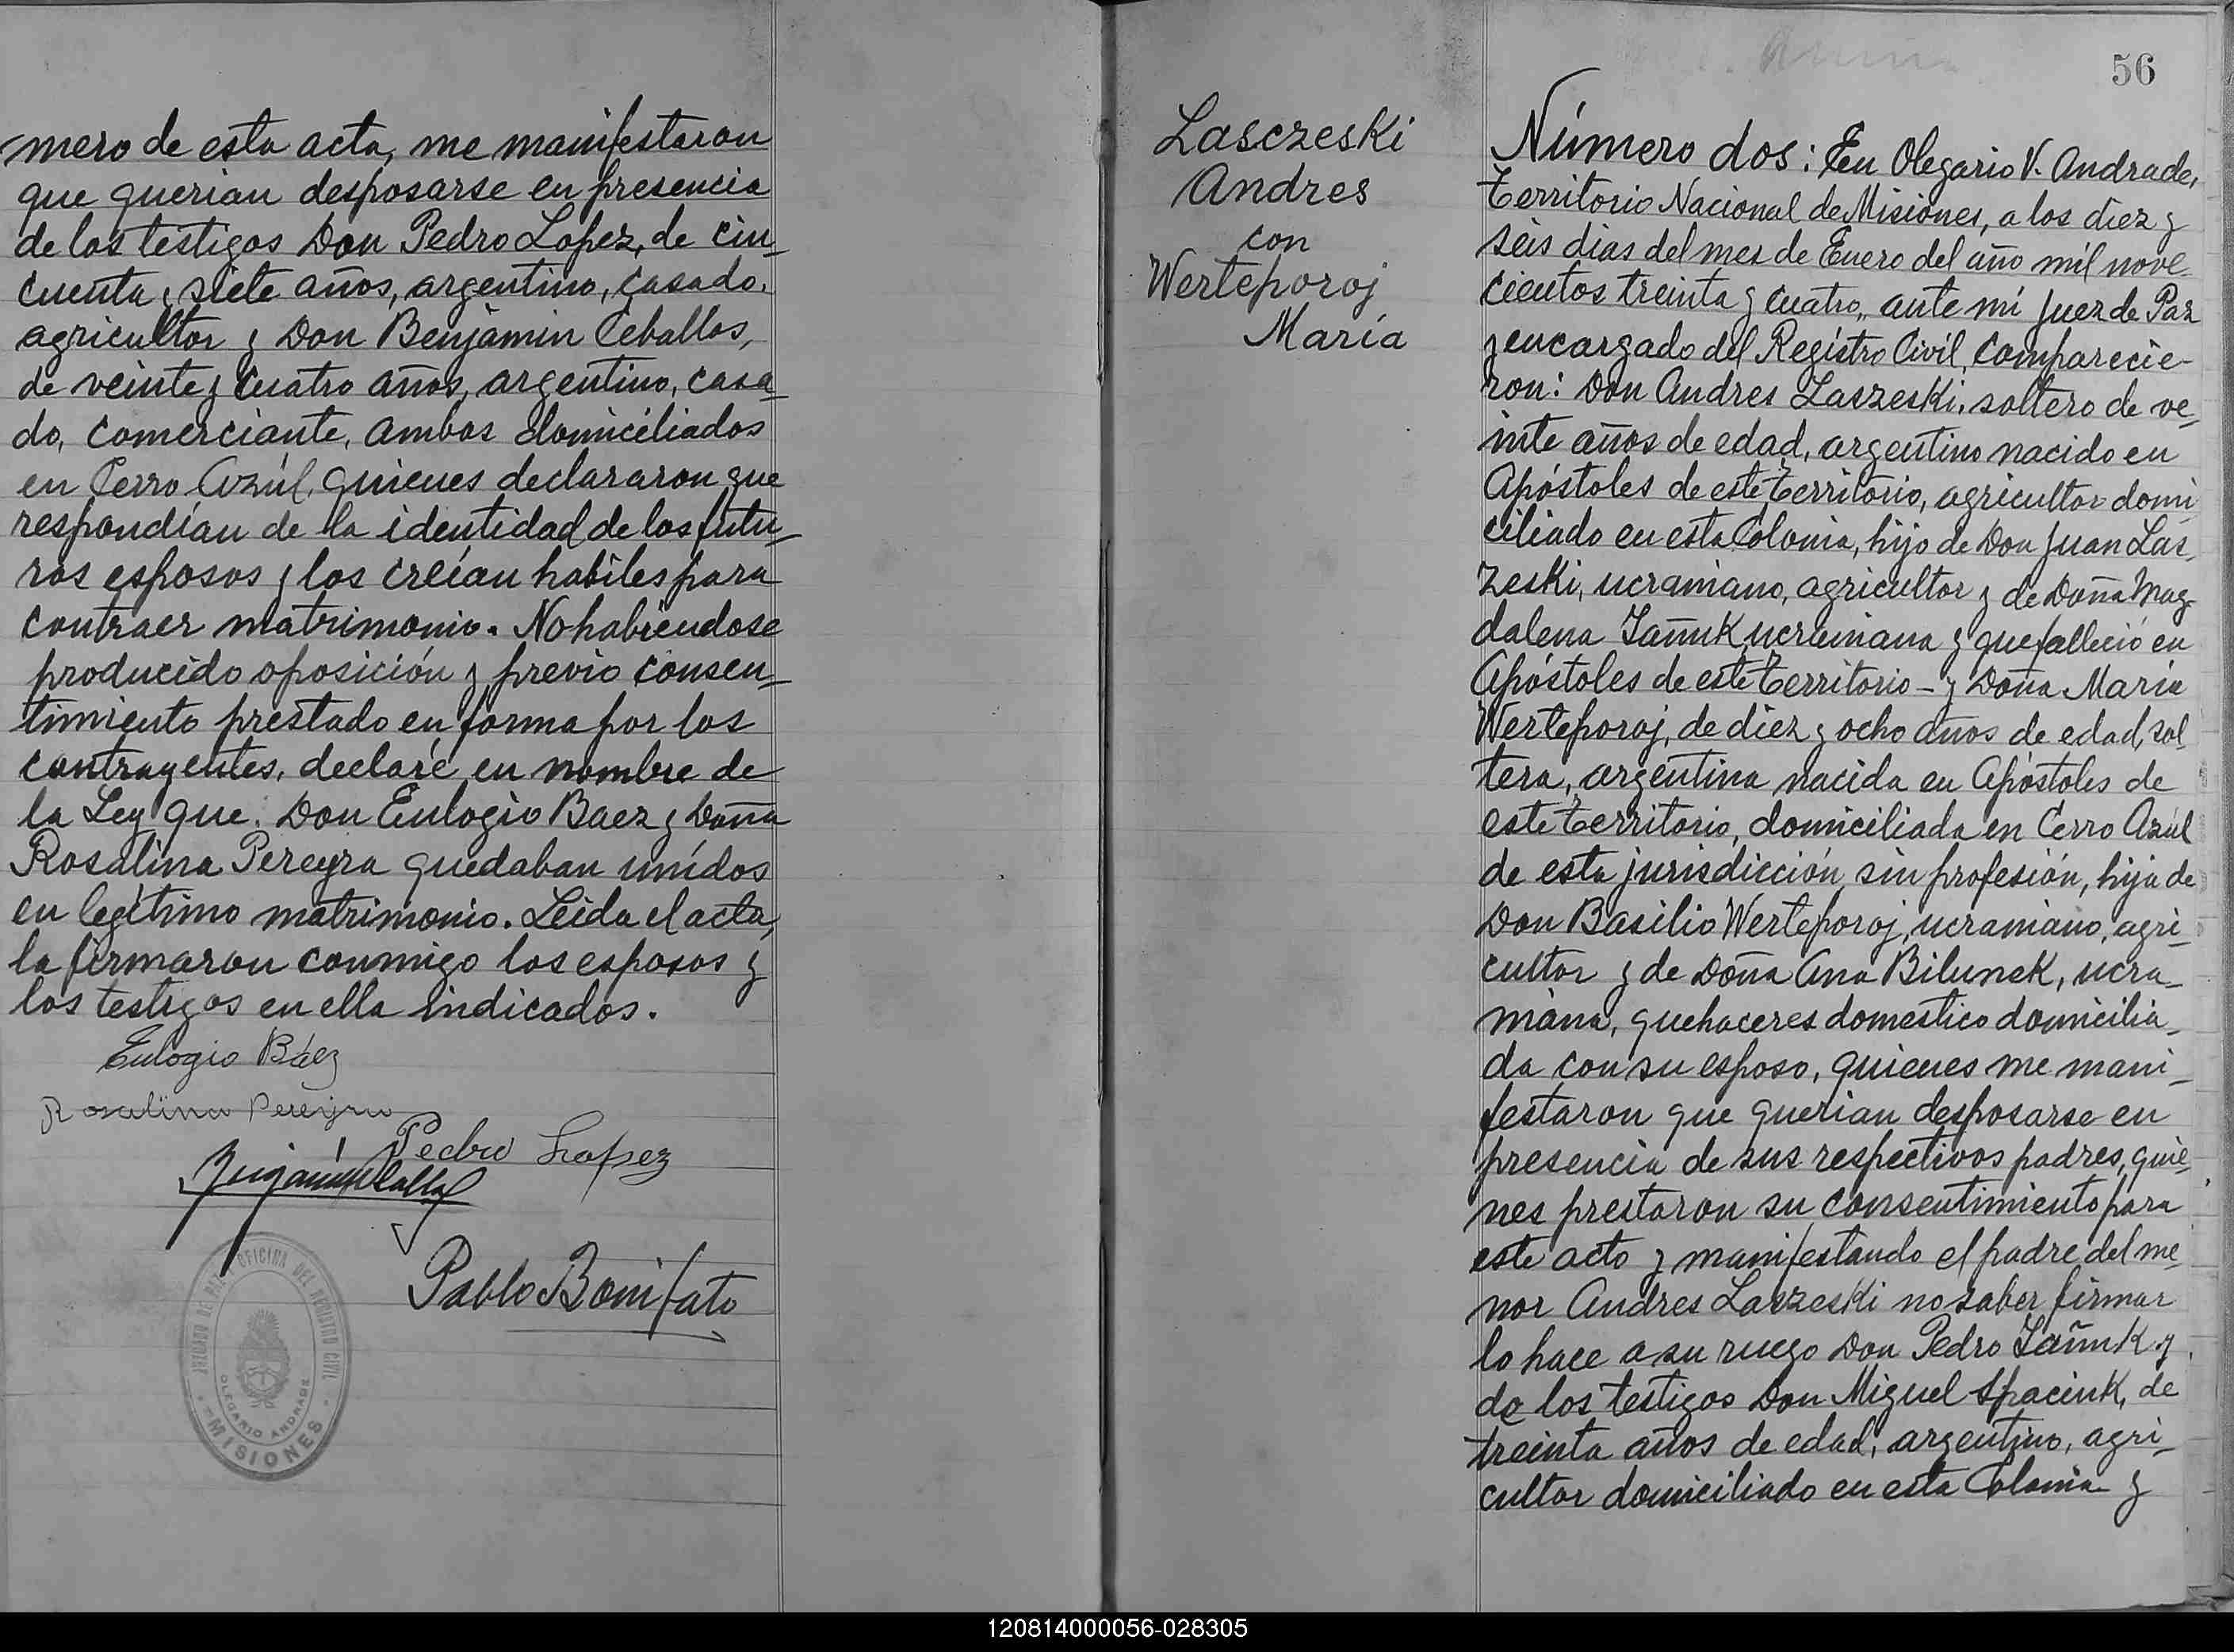 mero de esta acta, me manifestaron
que querian desposarse en presencia
de los testigos Don Pedro Lopez, de cin_
cuenta y siete años, argentino, casado.
agricultor y Don Benjamin Ceballos,
de veinte y cuatro años, argentino, casa_
do, comerciante, ambos domiciliados
en Cerro Azúl, quienes declararon que
respondían de la identidad de los futu_
ros esposos y los creían habiles para
contraer matrimonio. No habiendose
producido oposición y previo consen_
timiento prestado en forma por los
contrayentes, declaré en nombre de
la Ley que: Don Eulogio Baez y Doña
Rosalina Pereyra quedaban unídos
en legítimo matrimonio. Leida el acta,
la firmaron conmigo los esposos y
los testigos en ella indicados.
Eulogio Báez
Rosalina Pereyra
Pedro Lopez
Pablo Bonifato
JUZGADO DE PAZ Y OFICINA DEL REGISTRO CIVIL
OLEGARIO ANDRADE
MISIONES
56
Lasczeski
Andres
con
Werteporoj
María
Número dos: En Olegario V. Andrade,
territorio Nacional de Misiones, a los diez y
seis dias del mes de Enero del año mil nove
cientos treinta y cuatro, ante mí Juez de Paz
y encargado del Registro Civil, comparecie-
ron: Don Andres Laszeski, soltero de ve_
inte años de edad, argentino nacido en
Apóstoles de este territorio, agricultor domi
ciliado en esta Colonia, hijo de Don Juan Las_
zeski, ucraniano, agricultor y de Doña Mag-
dalena Iañuk, ucraniana y que falleció en
Apóstoles de este territorio - y Doña María
Werteporoj, de diez y ocho años de edad, sol_
tera, argentina nacida en Apóstoles de
este territorio, domiciliada en Cerro Azúl
de esta jurisdicción, sin profesión, hija de
Don Basilio Werteporoj, ucraniano, agri_
cultor y de Doña Ana Bilunek, ucra_
niana, quehaceres domestico domicilia_
da con su esposo, quienes me mani_
festaron que querian desposarse en
presencia de sus respectivos padres, quie_
nes prestaron su consentimiento para
este acto y manifestando el padre del me_
nor Andres Laszeski no saber firmar
lo hace a su ruego Don Pedro Iañuk y
de los testigos Don Miguel Spaciuk, de
treinta años de edad, argentino, agri_
cultor domiciliado en esta Colonia y
120814000056-028305